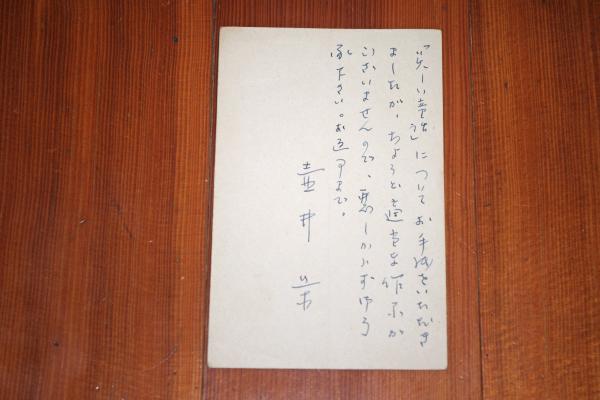 「美しい童話」についてお手紙をいただき
ましたが、ちょうど適当な作品が
ございませんので、悪しからずゆる
し下さい。お返事まで。
壺井 栄